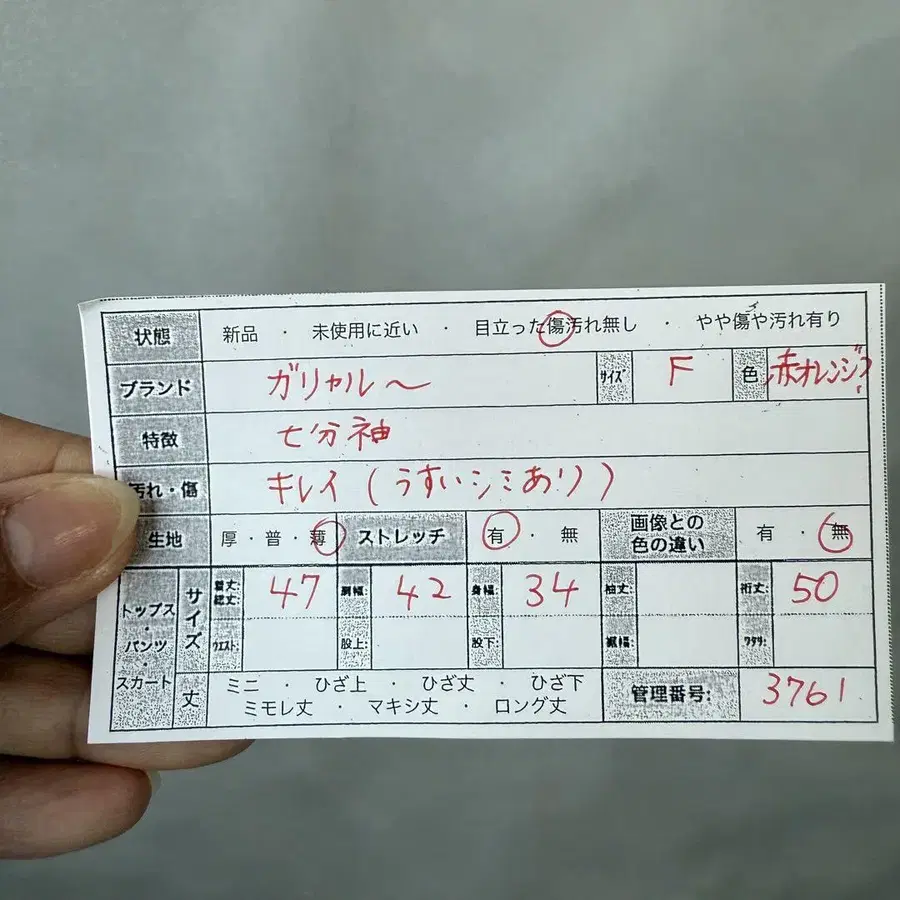 状態 新品 ・ 未使用に近い ・ 目立った傷汚れ無し ・ やや傷や汚れ有り
ブランド ガリャル〜 サイズ F 色 赤オレンジ?
特徴 七分袖
汚れ・傷 キレイ(うすいシミあり)
生地 厚・普・薄 ストレッチ 有・無 画像との色の違い 有・無
トップス・パンツ・スカート サイズ 着丈:総丈: 47 肩幅: 42 身幅: 34 袖丈: 裄丈: 50
ウエスト: 股上: 股下: 裾幅: ワタリ:
丈 ミニ ・ ひざ上 ・ ひざ丈 ・ ひざ下
ミモレ丈 ・ マキシ丈 ・ ロング丈
管理番号: 3761